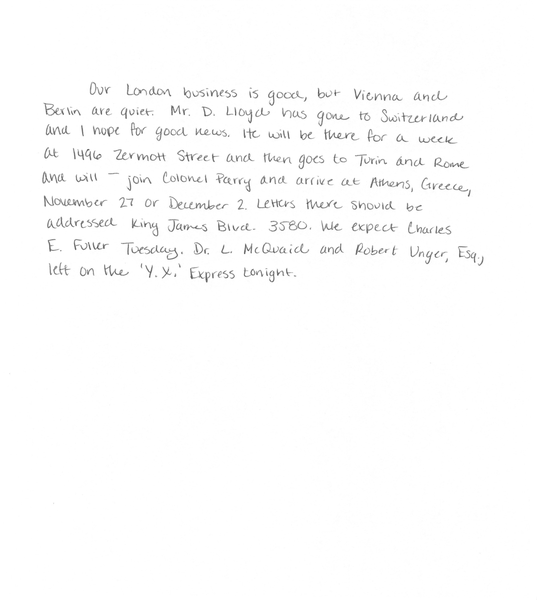 Our London business is good, but Vienna and
Berlin are quiet. Mr. D. Lloyd has gone to Switzerland
and I hope for good news. He will be there for a week
at 1496 Zermott Street and then goes to Turin and Rome
and will — join Colonel Parry and arrive at Athens, Greece,
November 27 or December 2. Letters there should be
addressed King James Blvd. 3580. We expect Charles
E. Fuller Tuesday. Dr. L. McQuaid and Robert Unger, Esq.,
left on the 'Y.X.' Express tonight.